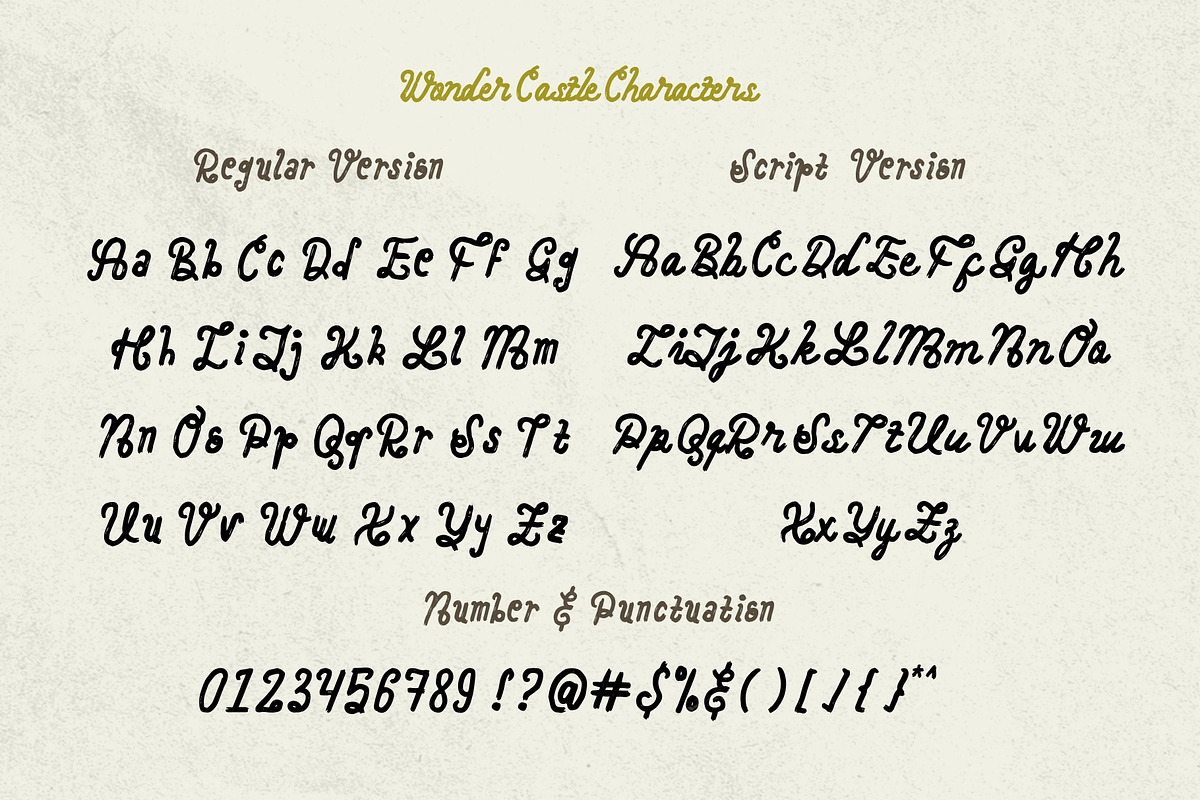 Wonder Castle Characters
Regular Version
Aa Bb Cc Dd Ee Ff Gg
Hh Ii Jj Kk Ll Mm
Nn Oo Pp Qq Rr Ss Tt
Uu Vv Ww Xx Yy Zz
Script Version
Aa Bb Cc Dd Ee Ff Gg Hh
Ii Jj Kk Ll Mm Nn Oo
Pp Qq Rr Ss Tt Uu Vv Ww
Xx Yy Zz
Number & Punctuation
0123456789 !?@#$%&()[]{}*^